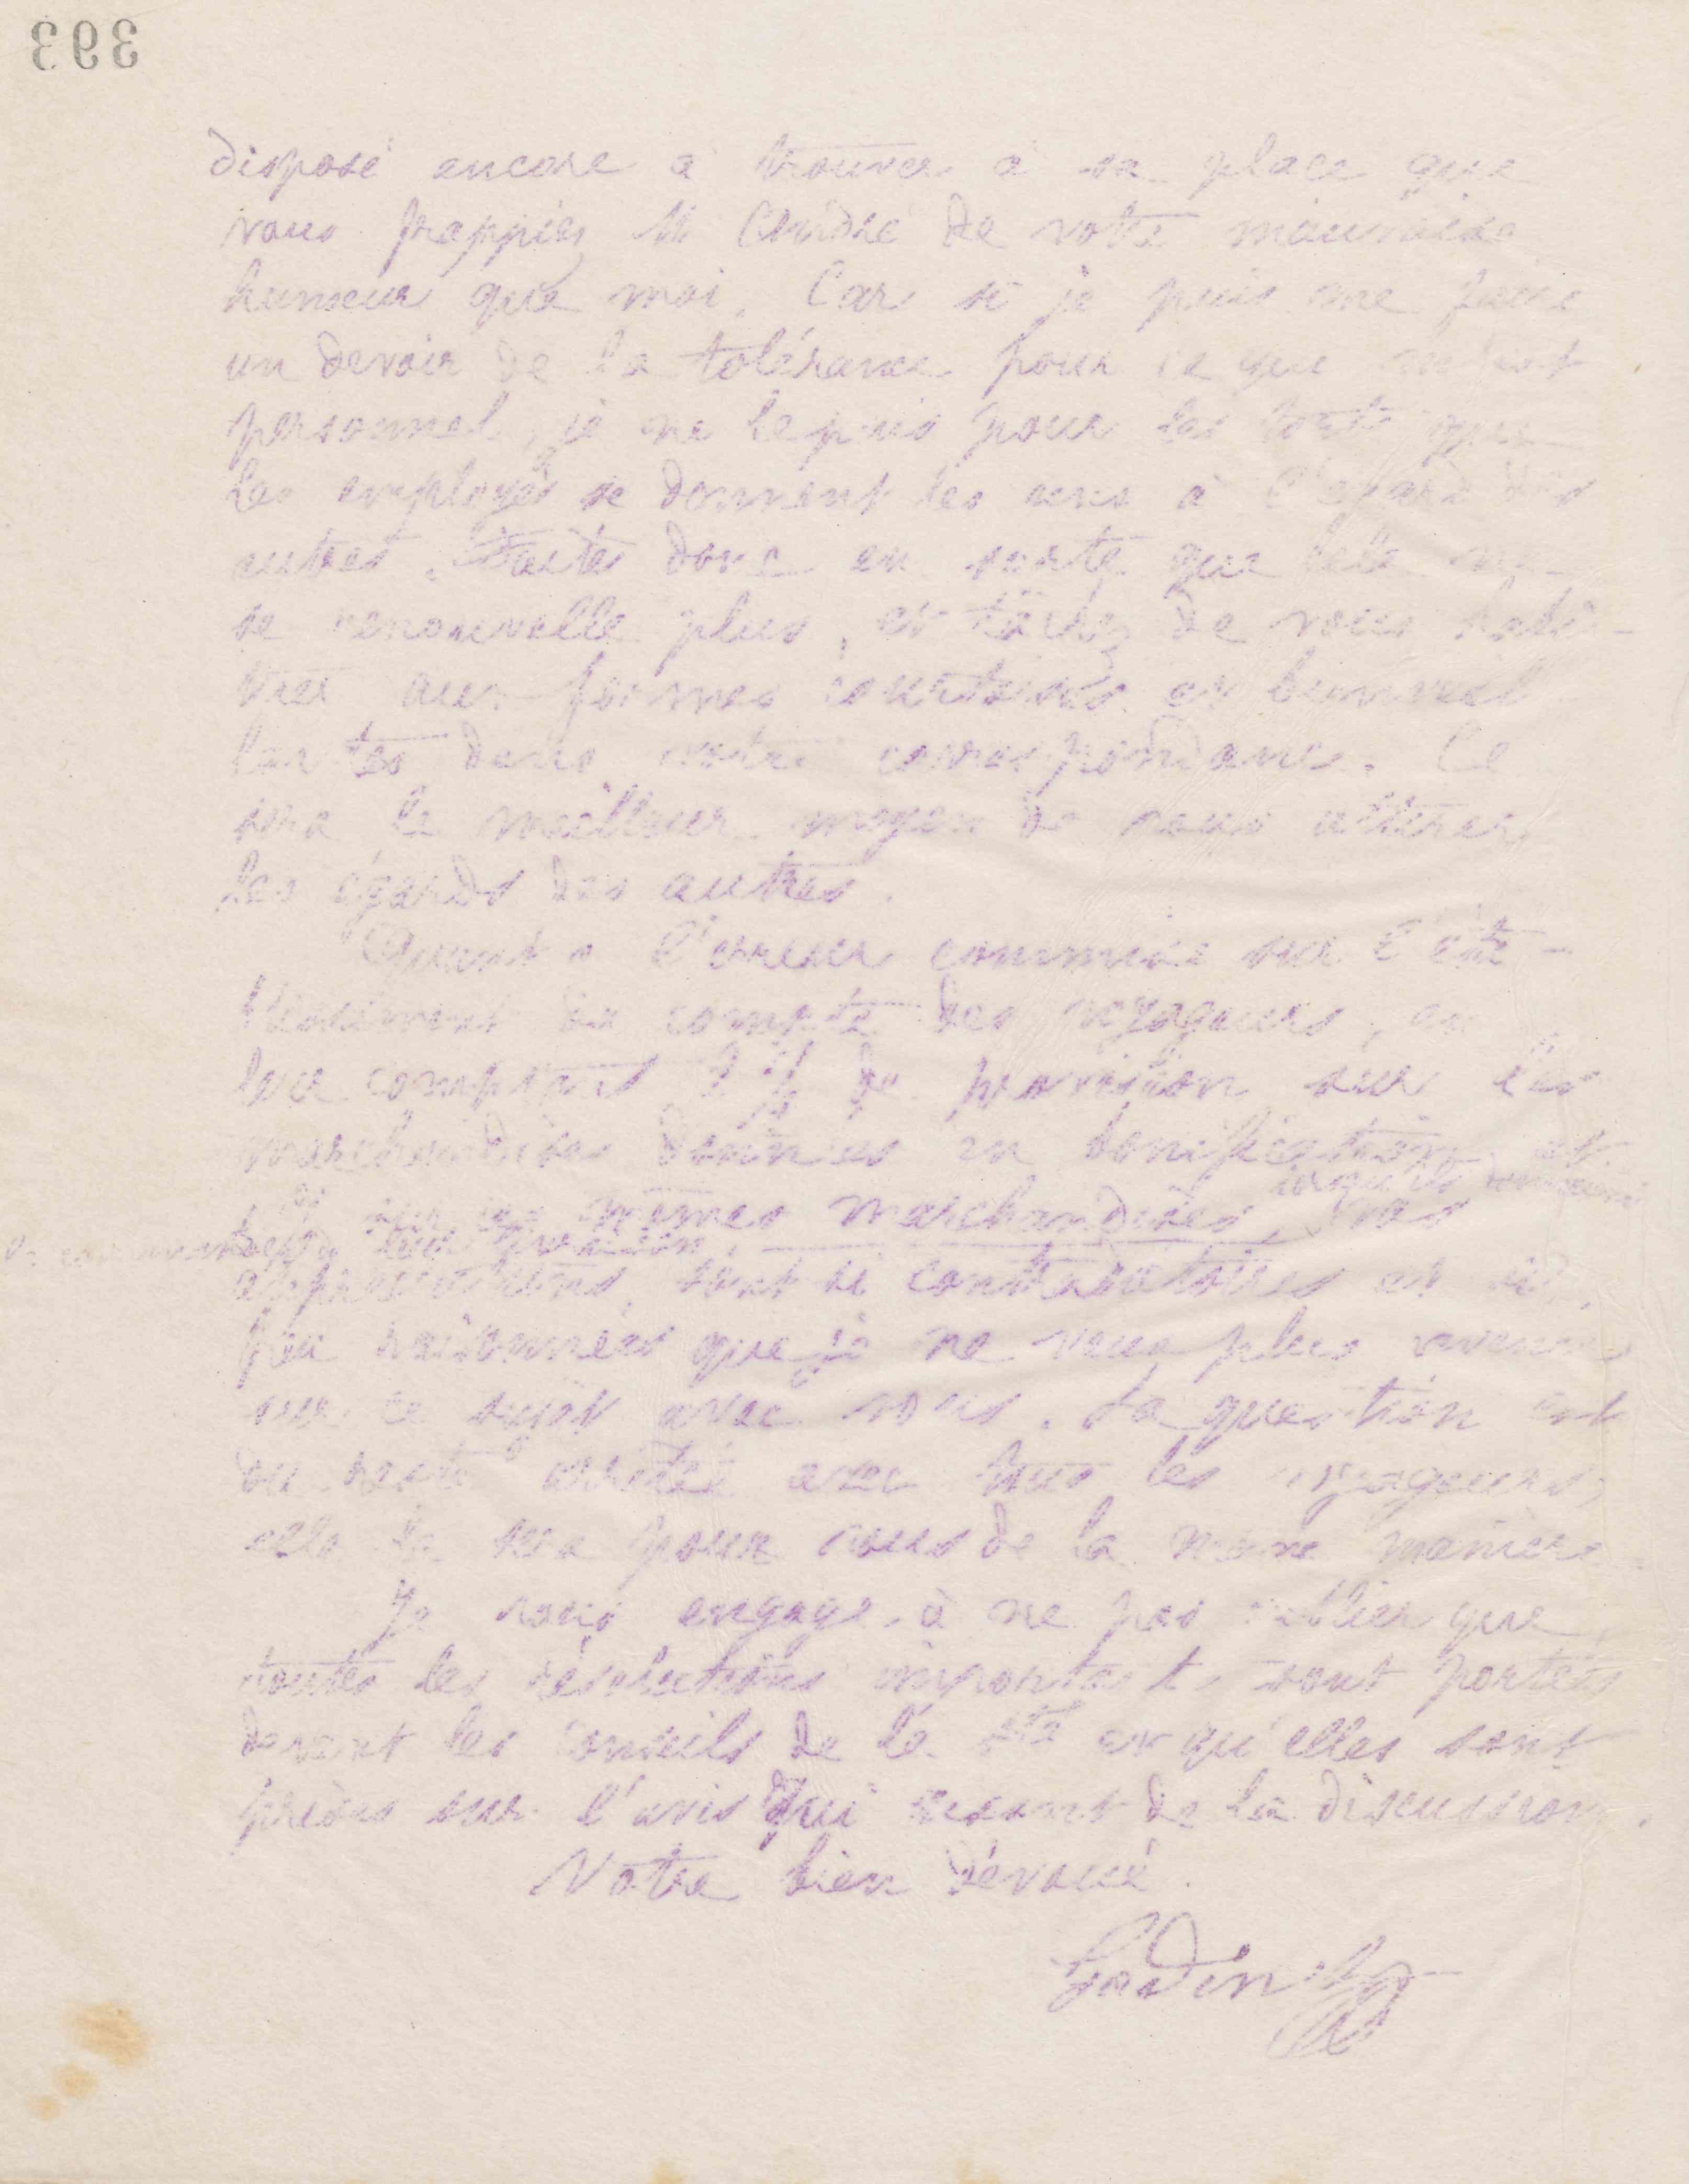 393
disposé encore à trouver à sa place que
vous frappiez M André de votre mauvaise
humeur que moi. Car si je puis me faire
un devoir de la tolérance pour ce qui m'est
personnel, je ne le puis pour les torts que
les employés se donnent les uns à l'égard des
autres. Faites donc en sorte que cela ne
se renouvelle plus, et tâchez de vous habi-
tuer aux formes courtoises et bienveil
lantes dans votre correspondance. Ce
sera le meilleur moyen de vous attirer
les égards des autres.
Quant à l'erreur commise sur l'éta-
blissement du compte des voyageurs, en
leur comptant % de provision sur les
marchandises données en bonification et
% sur ces mêmes marchandises, lorsqu'ils
leur vos
appréciations, sont si contradictoires et si
peu raisonnées que je ne veux plus revenir
sur ce sujet avec vous. La question est
du reste arrêtée avec tous les voyageurs,
elle le sera pour vous de la même manière
Je vous engage à ne pas oublier que
toutes les résolutions importantes sont portées
devant les Conseils de la Sté et qu'elles sont
prises sur l'avis qui ressort de la discussion.
Votre bien dévoué.
Godin